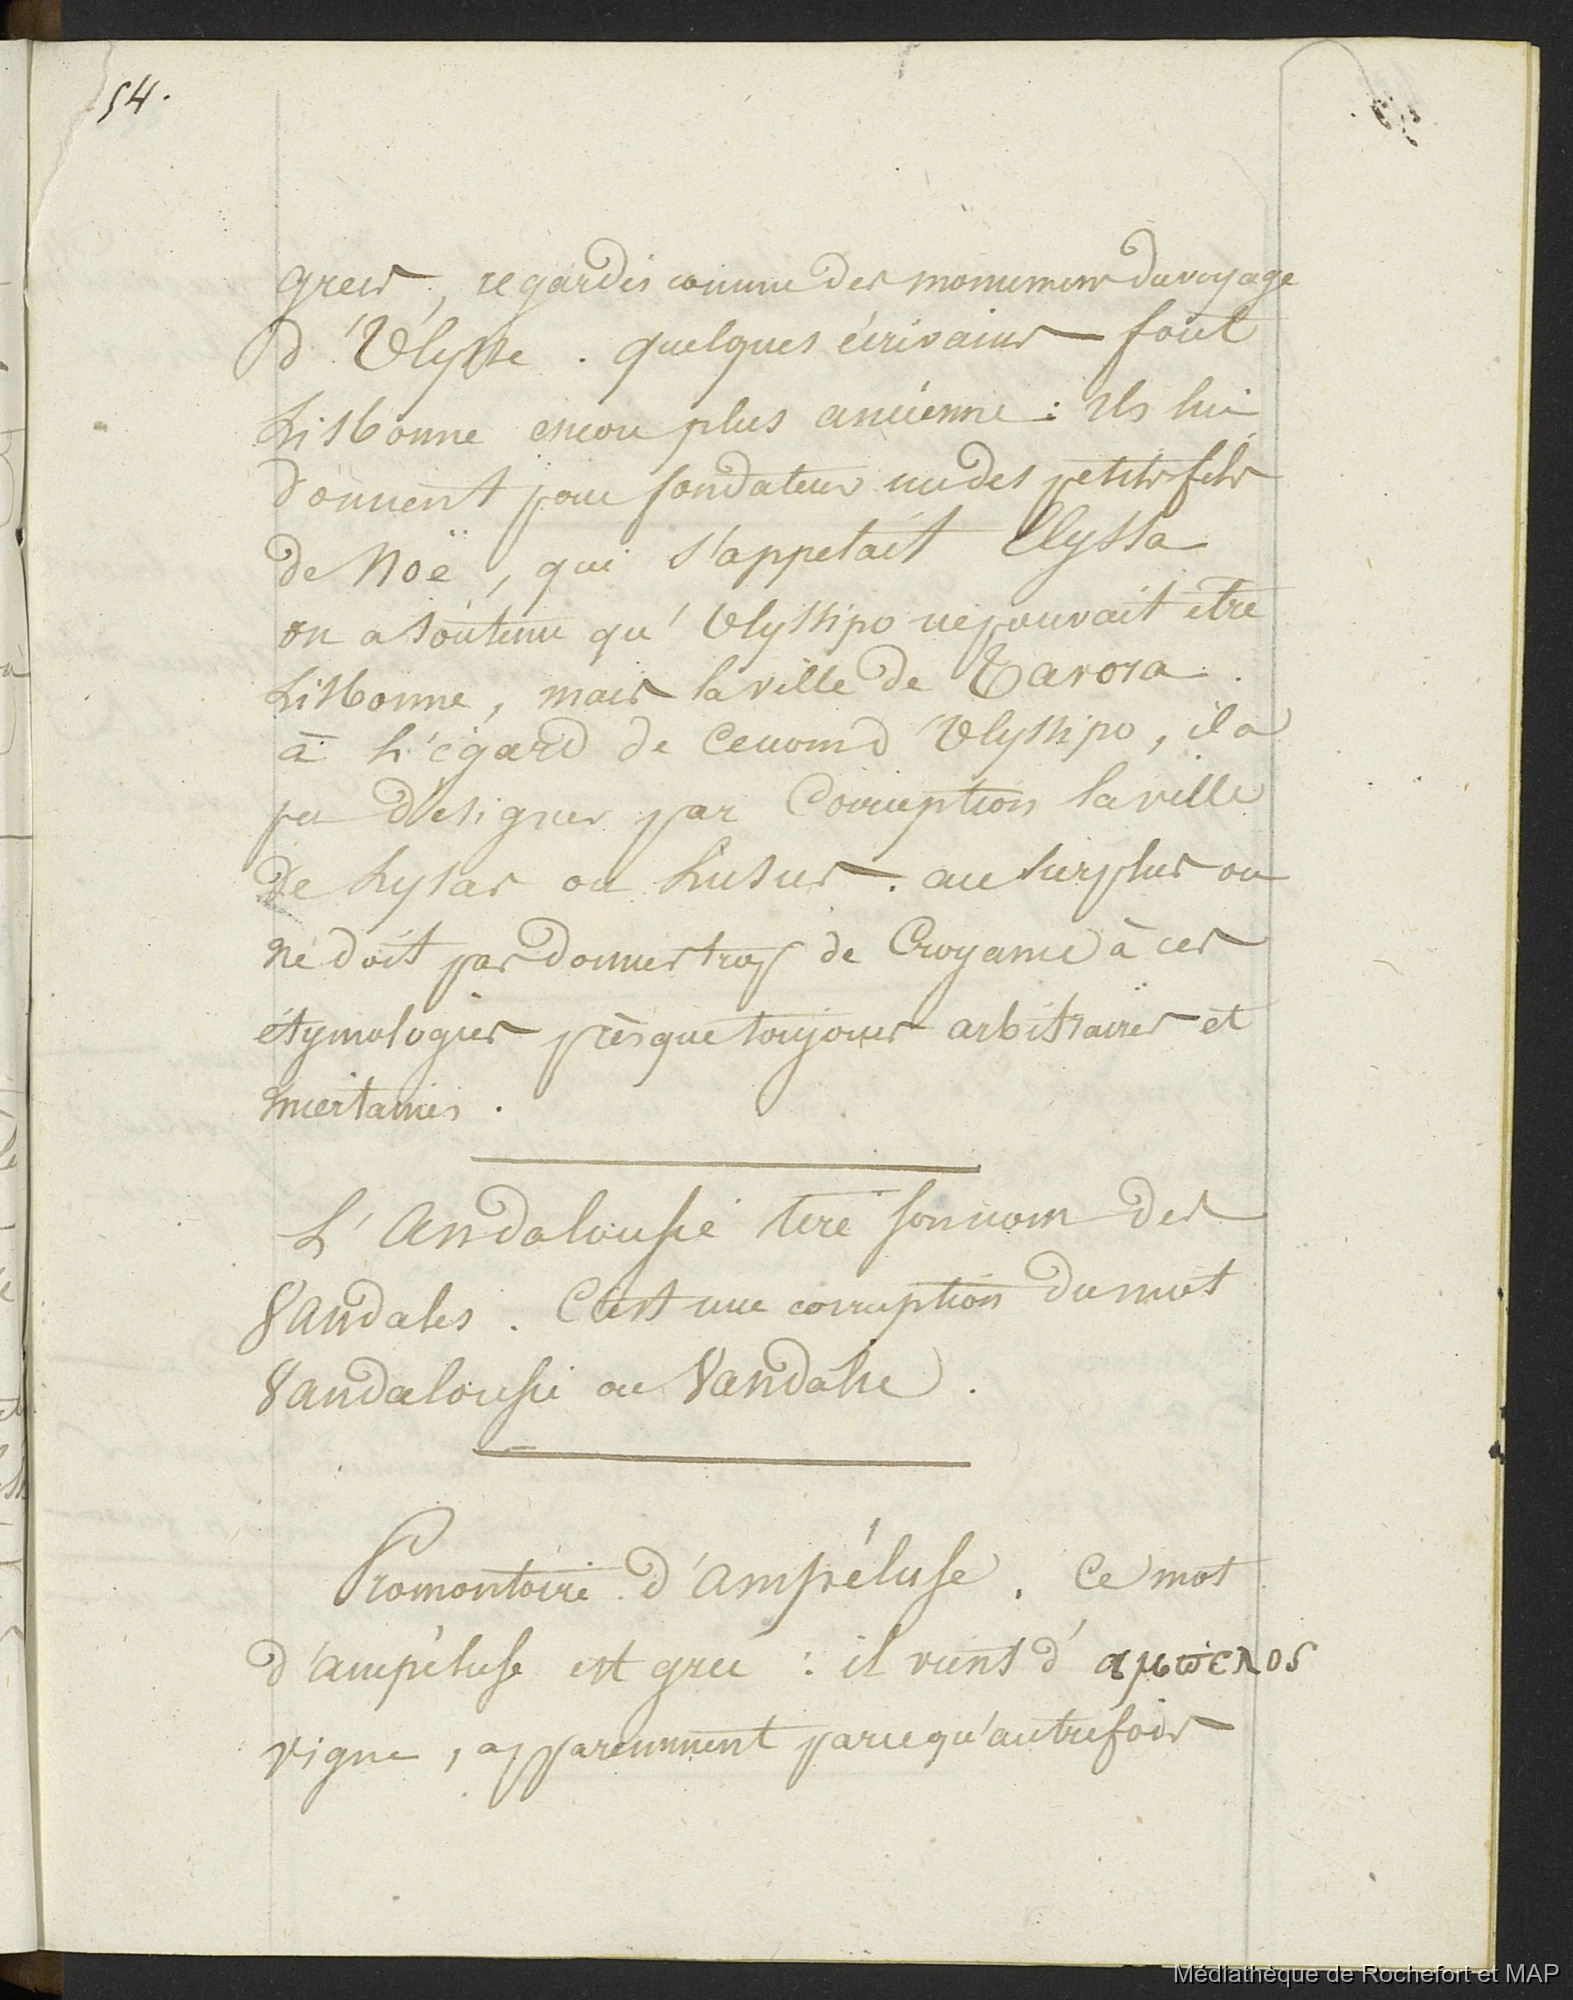 54.
grecs, regardés comme des monumens du voyage
d'Ulysse. quelques écrivains font
Lisbonne encore plus ancienne : ils lui
donnent pour fondateur un des petits-fils
de Noë, qui s'appelait Elyssa
on a soutenu qu'Ulyssipo ne pouvait être
Lisbonne, mais la ville de Tavora.
à L'égard de ce nom d'Ulyssipo, il a
pu désigner par Corruption la ville
de Lysas ou Lusus. au surplus on
ne doit pas donner trop de Croyance à ces
étymologies presque toujours arbitraires et
incertaines.
L'Andalousie tire son nom des
Vandales. C'est une corruption du mot
Vandalousie ou Vandalie.
Promontoire d'Ampéluse. Ce mot
d'ampéluse est grec : il vient d'αμϖελος
vigne, apparemment parcequ'autrefois
Médiathèque de Rochefort et MAP